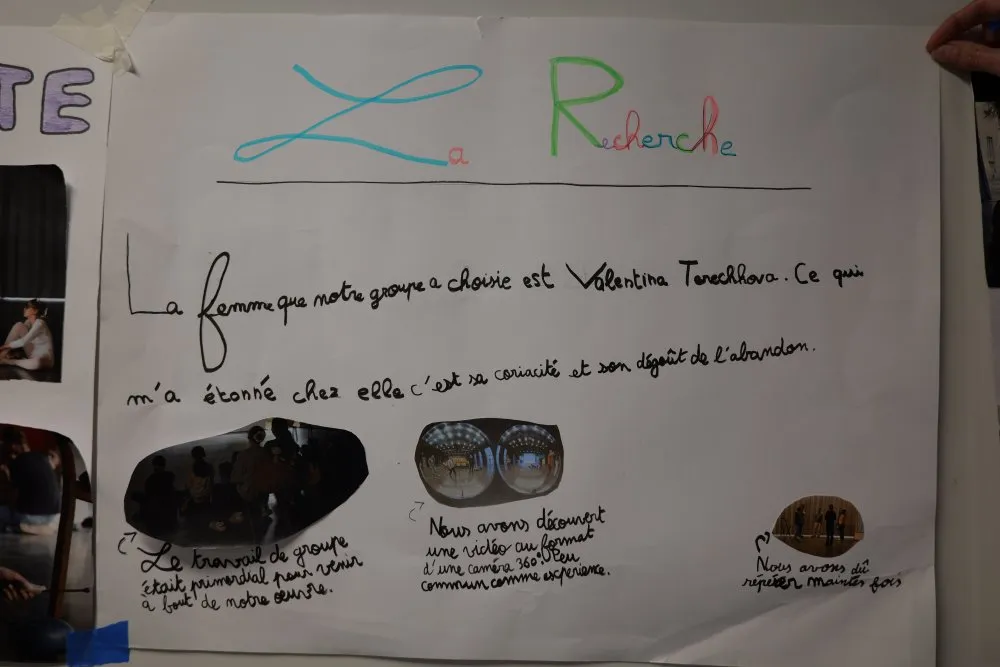 TE
La Recherche
La femme que notre groupe a choisie est Valentina Terechhova. Ce qui
m'a étonné chez elle c'est sa coriacité et son dégoût de l'abandon.
Le travail de groupe
était primordial pour venir
a bout de notre œuvre.
Nous avons découvert
une vidéo au format
d'une caméra 360°. Peu
commun comme expérience.
Nous avons dû
répéter maintes fois